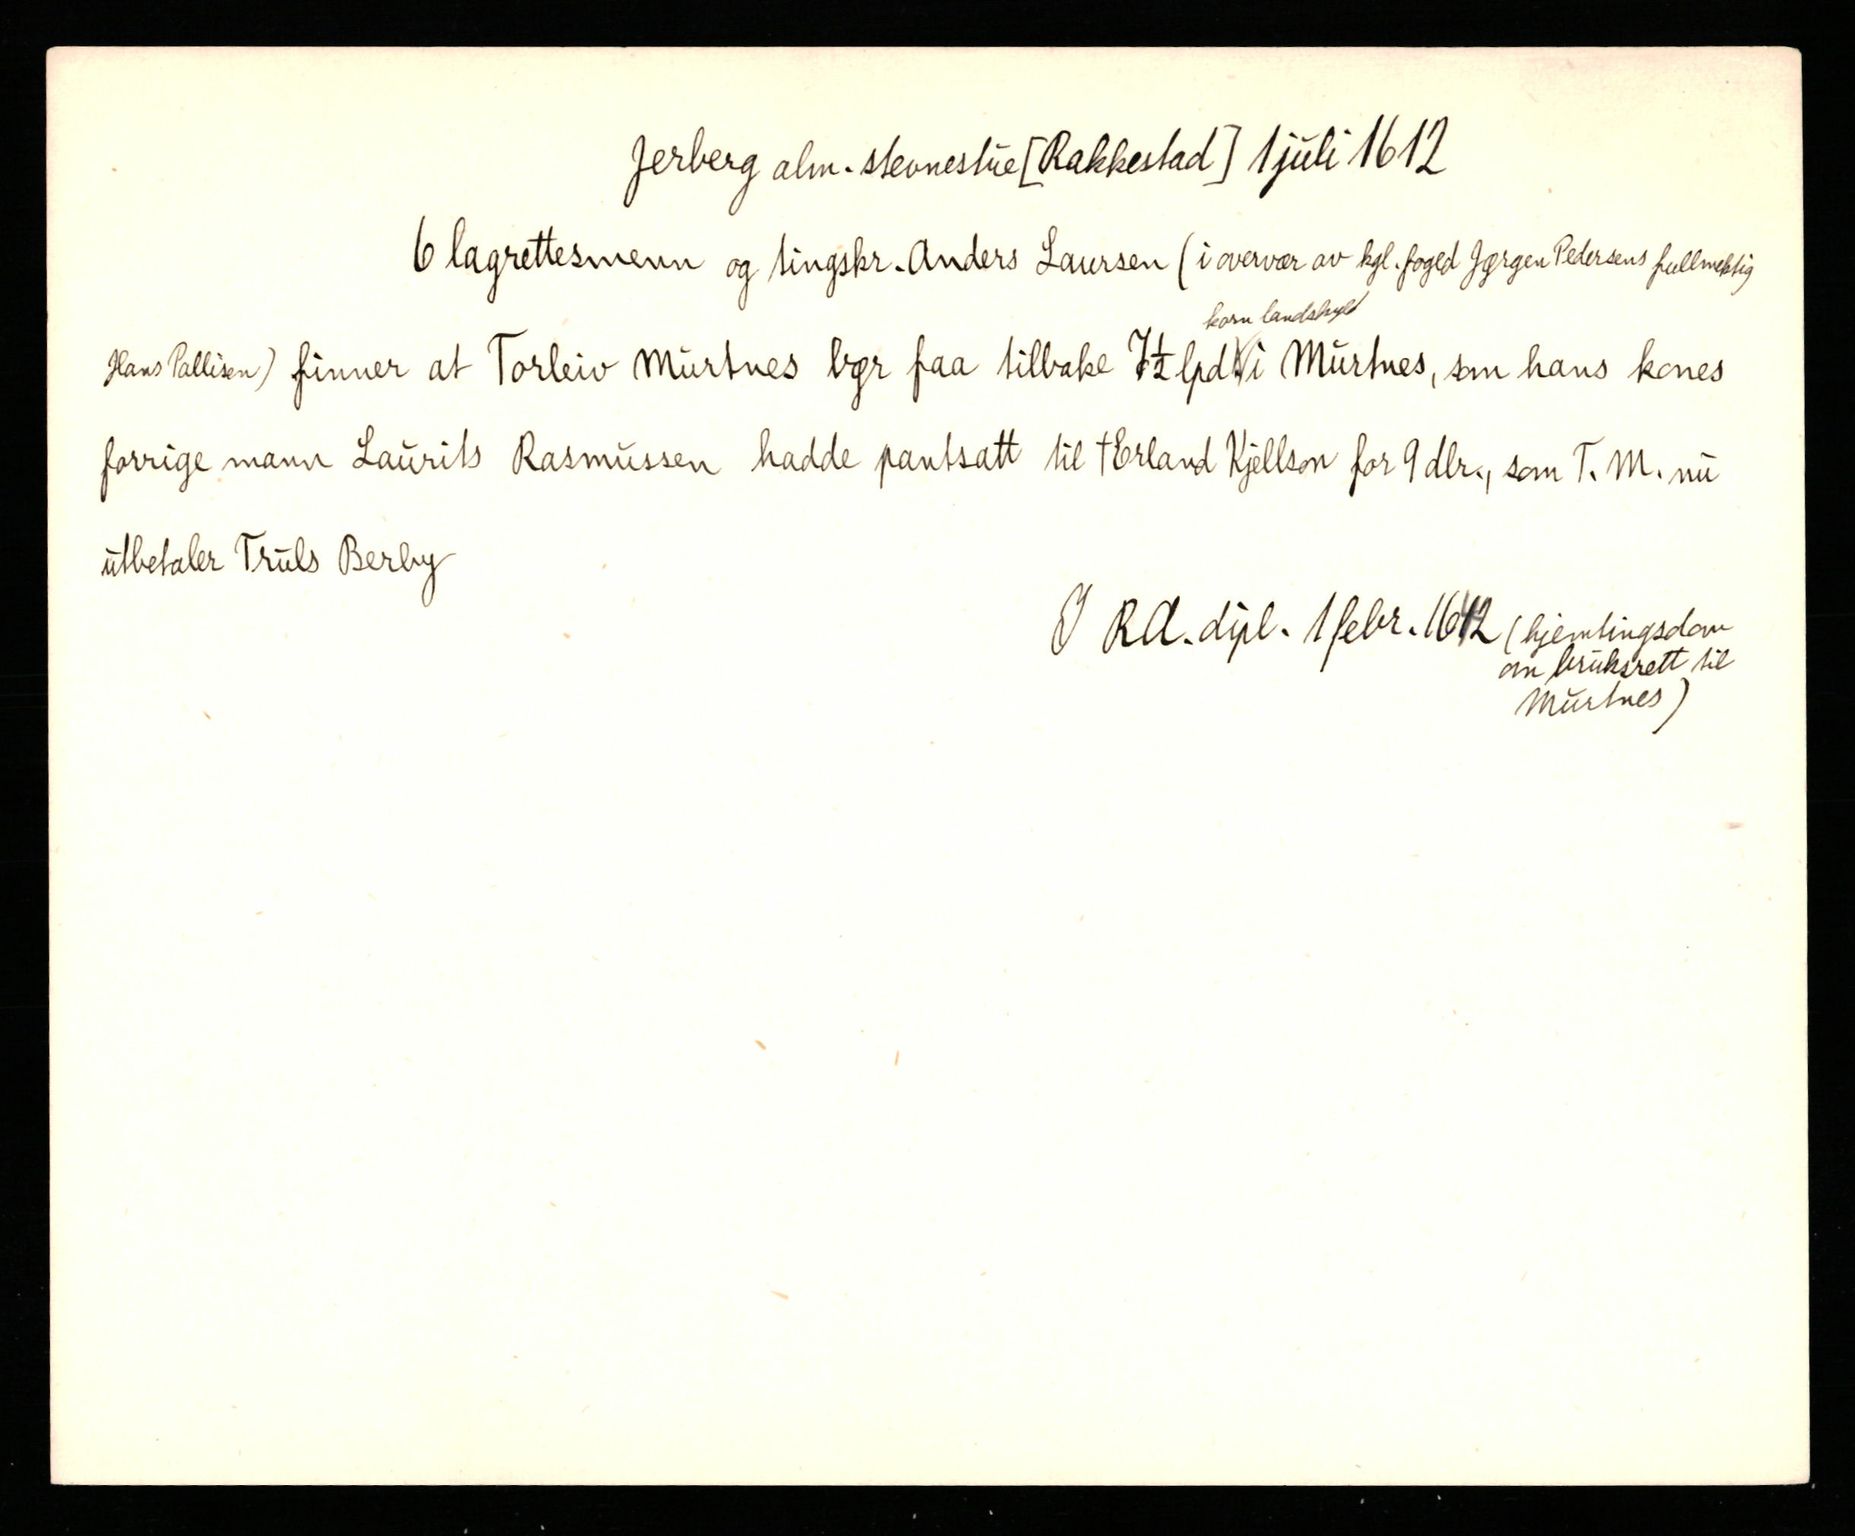 Jerberg alm. stevnestue [Rakkestad] 1 juli 1612
6 lagrettesmenn og tingskr. Anders Laursen (i overvær av kgl. foged Jørgen Pedersens fullmektig
korn landskyld
Hans Pallisen) finner at Torleiv Murtnes bør faa tilbake 7½ lpd i Murtnes, som hans kones
forrige mann Laurits Rasmussen hadde pantsatt til †Erland Kjellson for 9 dlr., som T. M. nu
utbetaler Truls Berby
I RA. dipl. 1 febr. 1642 (hjemtingsdom
om bruksrett til
Murtnes)